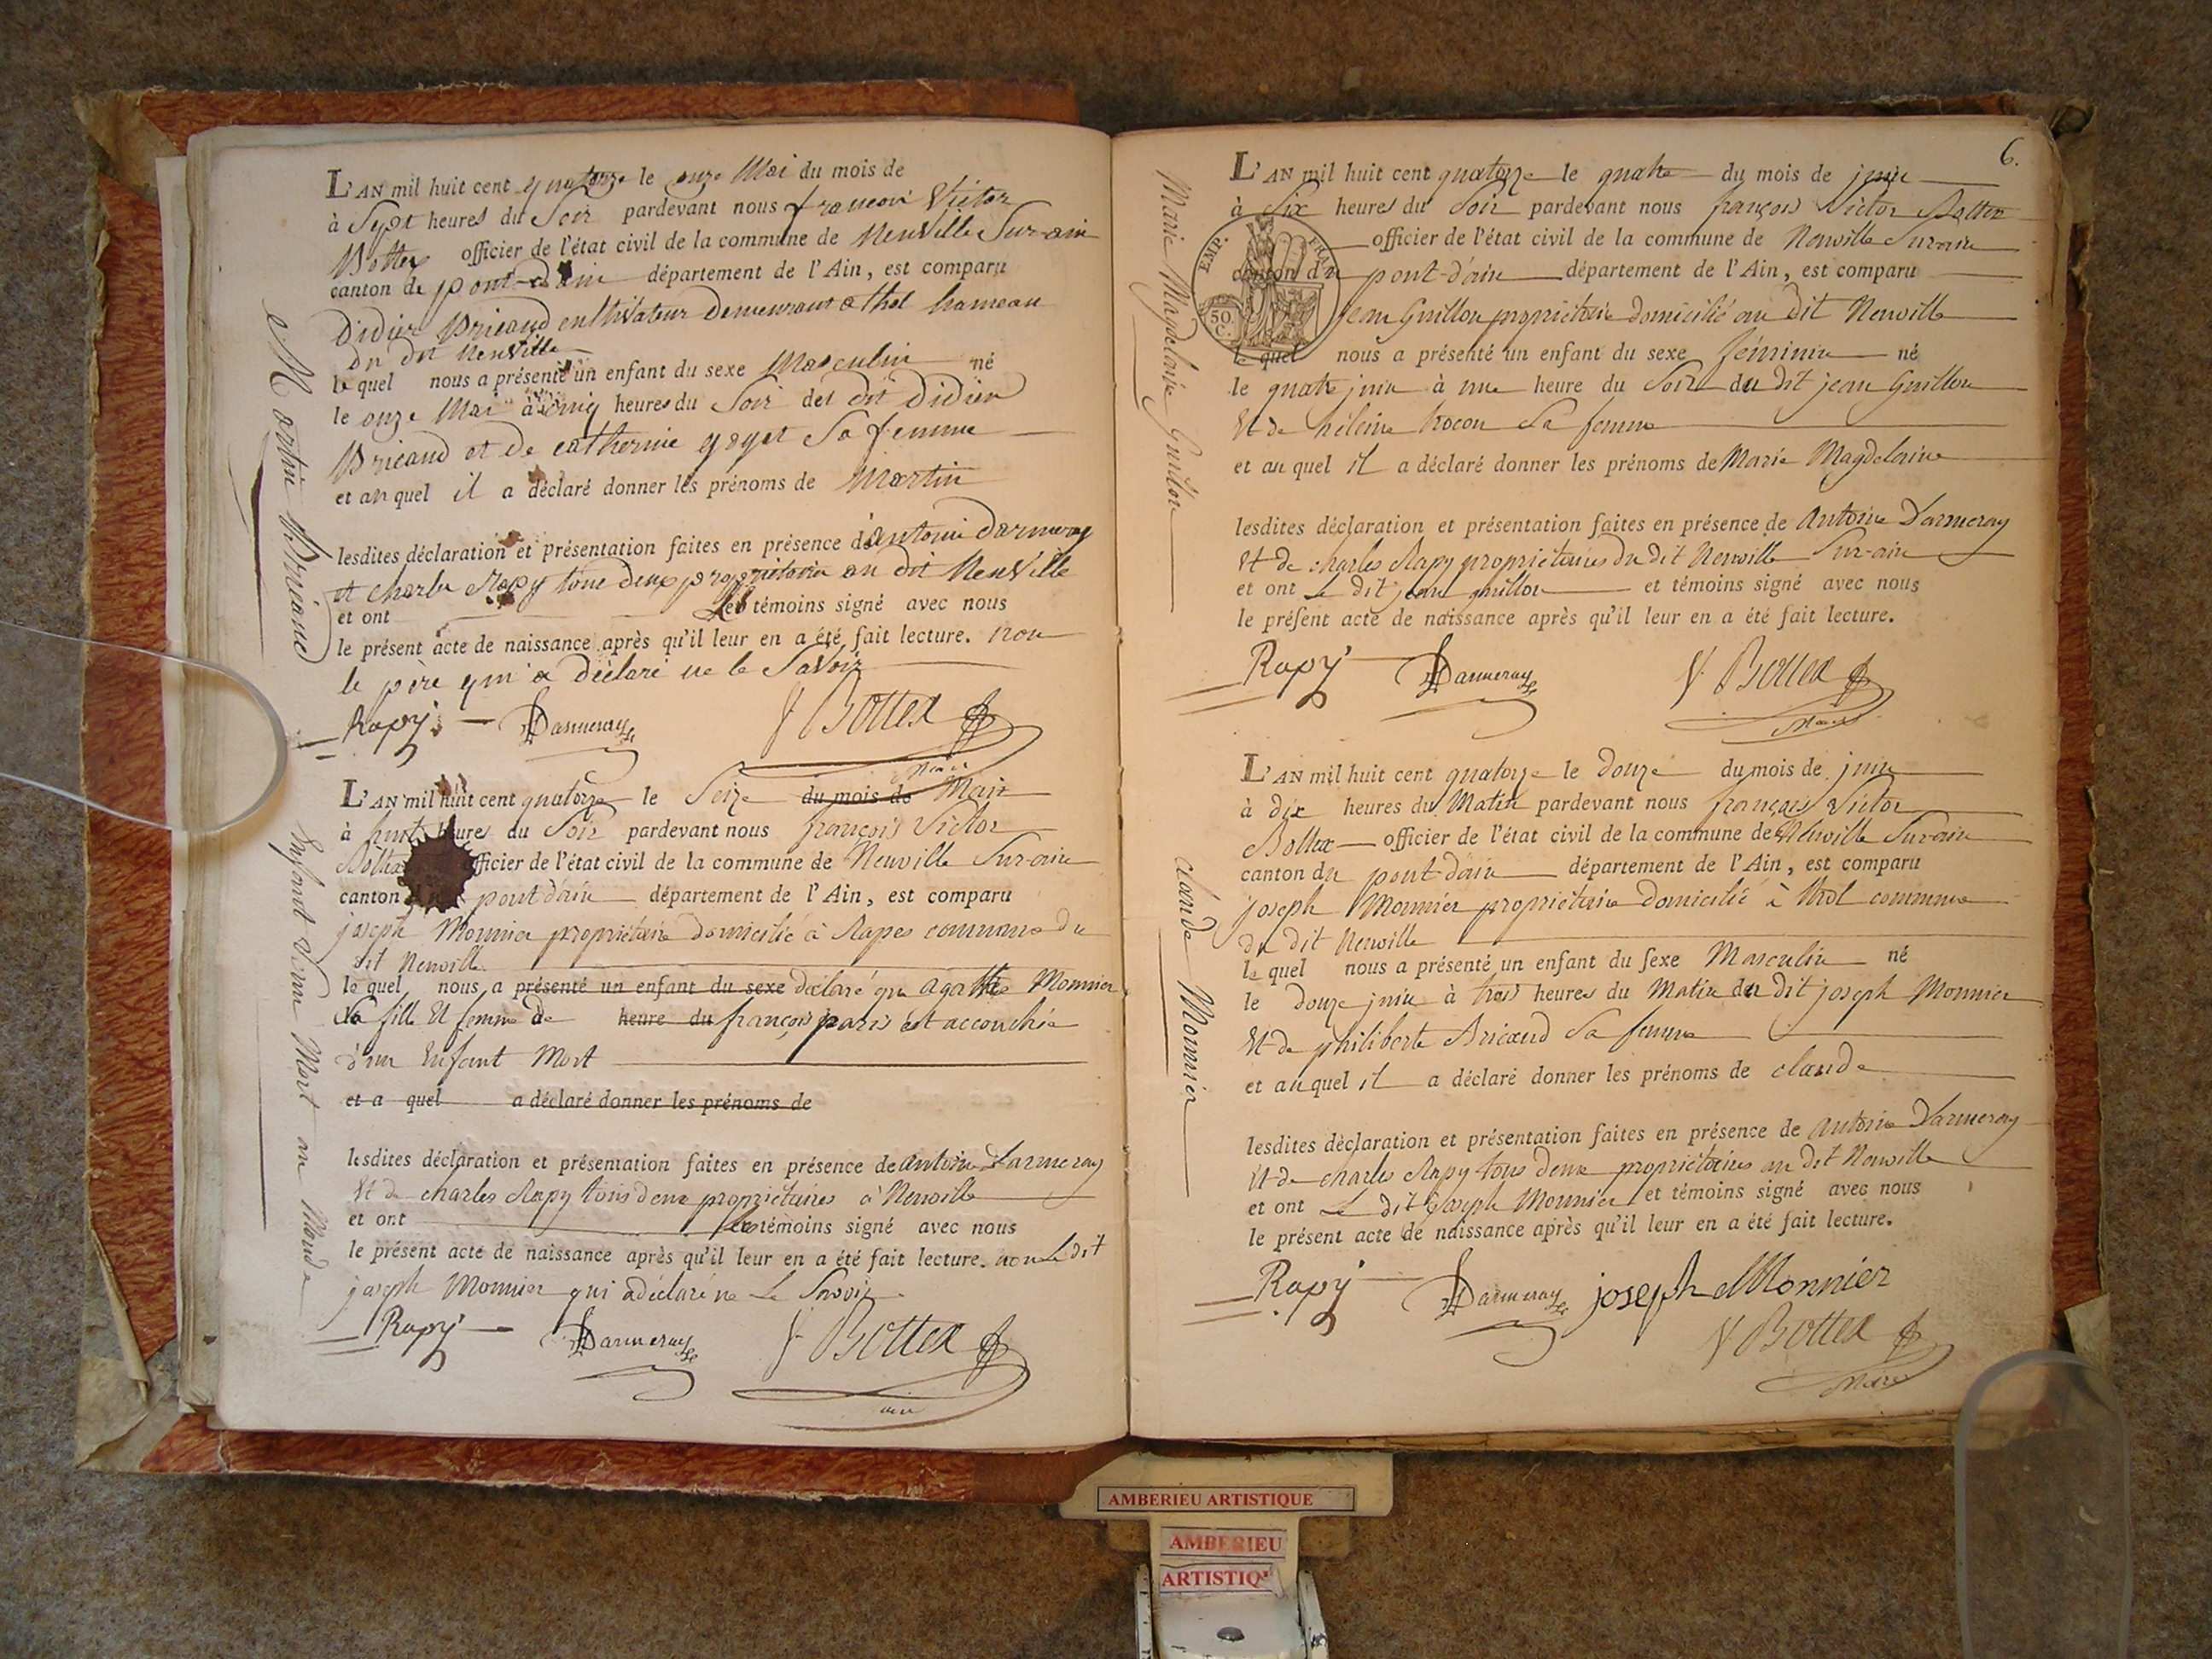 L'AN mil huit cent quatorze le onze Mai du mois de
à Sept heures du Soir pardevant nous francoi Victor
Bottex officier de l'état civil de la commune de Neuville Sur-ain
canton de pont-d'ain département de l'Ain, est comparu
Didier Bricaud cultivateur Demeurant a thol hameau
du dit Neuville
le quel nous a présenté un enfant du sexe Masculin né
le onze Mai à cinq heures du Soir del dit Didier
Bricaud et de catherine goyet Sa femme
et au quel il a déclaré donner les prénoms de Martin
lesdites déclaration et présentation faites en présence d'antoine Darmeray
et charle Rapy tous deux propriétaire au dit Neuville
et ont Les témoins signé avec nous
le présent acte de naissance après qu'il leur en a été fait lecture. non
le père qui a déclaré ne le Savoir
Rapy Darmeray V Bottex
Maire
Martin Bricaud
L'AN mil huit cent quatorze le Seize du mois de Mai
à huit heures du Soir pardevant nous françois Victor
Bottex officier de l'état civil de la commune de Neuville Sur-ain
canton pont d'ain département de l'Ain, est comparu
joseph Monnier propriétaire domicilié à Rapes commune du
dit Neuville
le quel nous a présenté un enfant du sexe déclaré que agathe Monnier
Sa fille Et femme de heure du françois paris est accouchée
d'un Enfant Mort
et a quel a déclaré donner les prénoms de
lesdites déclaration et présentation faites en présence de antoine Darmeray
Et de charles Rapy tous deux propriétaires à Neuville
et ont les témoins signé avec nous
le présent acte de naissance après qu'il leur en a été fait lecture. non Le dit
joseph Monnier qui a déclaré ne Le Savoir
Rapy Darmeray V Bottex
Enfant Venu Mort au Monde
6.
L'AN mil huit cent quatorze le quatre du mois de juin
à Six heures du Soir pardevant nous françois Victor Bottex
officier de l'état civil de la commune de Neuville Surain
canton du pont-d'ain département de l'Ain, est comparu
EMP. FRAN.
50 C.
jean Guillon propriétaire domicilié au dit Neuville
le quel nous a présenté un enfant du sexe féminin né
le quatre juin à une heure du Soir du dit jean Guillon
Et de héleine Sa femme
et au quel il a déclaré donner les prénoms de Marie Magdelaine
lesdites déclaration et présentation faites en présence de Antoine Darmeray
Et de charles Rapy propriétaires du dit Neuville Sur-ain
et ont Le dit jean guillon et témoins signé avec nous
le présent acte de naissance après qu'il leur en a été fait lecture.
Rapy Darmeray V Bottex
Maire
Marie Magdelaine Guillon
L'AN mil huit cent quatorze le douze du mois de juin
à dix heures du Matin pardevant nous françois Victor
Bottex officier de l'état civil de la commune de Neuville Surain
canton du pont-d'ain département de l'Ain, est comparu
joseph Monnier propriétaire domicilié à thol commune
du dit Neuville
le quel nous a présenté un enfant du sexe Masculin né
le douze juin à trois heures du Matin du dit joseph Monnier
Et de philiberte Bricaud Sa femme
et au quel il a déclaré donner les prénoms de claude
lesdites déclaration et présentation faites en présence de antoine Darmeray
Et de charles Rapy tous deux propriétaires au dit Neuville
et ont Le dit joseph Monnier et témoins signé avec nous
le présent acte de naissance après qu'il leur en a été fait lecture.
Rapy Darmeray joseph Monnier
V Bottex
Maire
claude Monnier
AMBERIEU ARTISTIQUE
AMBERIEU
ARTISTIQ